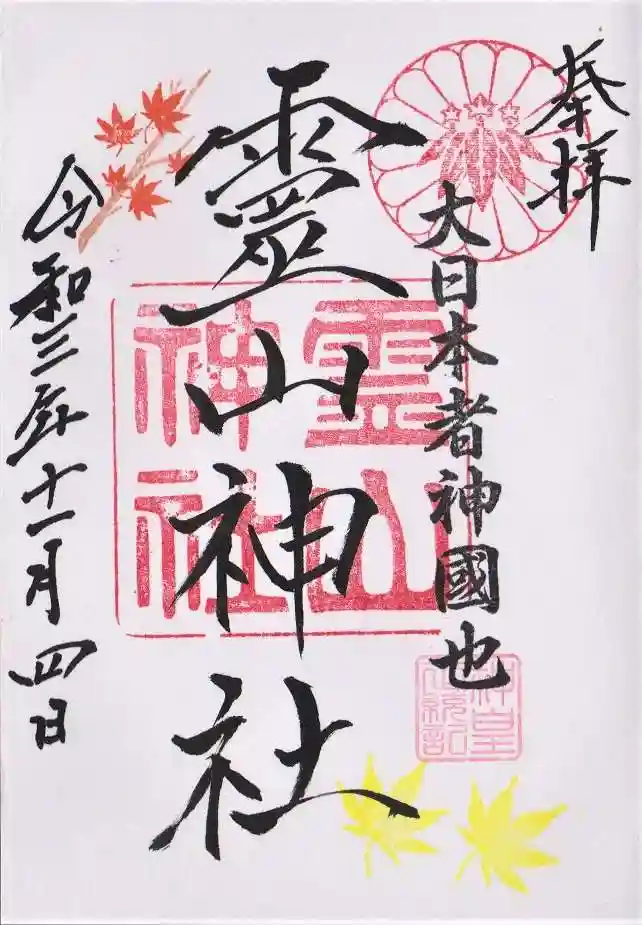 奉拝
大日本者神國也
靈山神社
令和三年十一月四日
靈山
神社
神皇
正統記